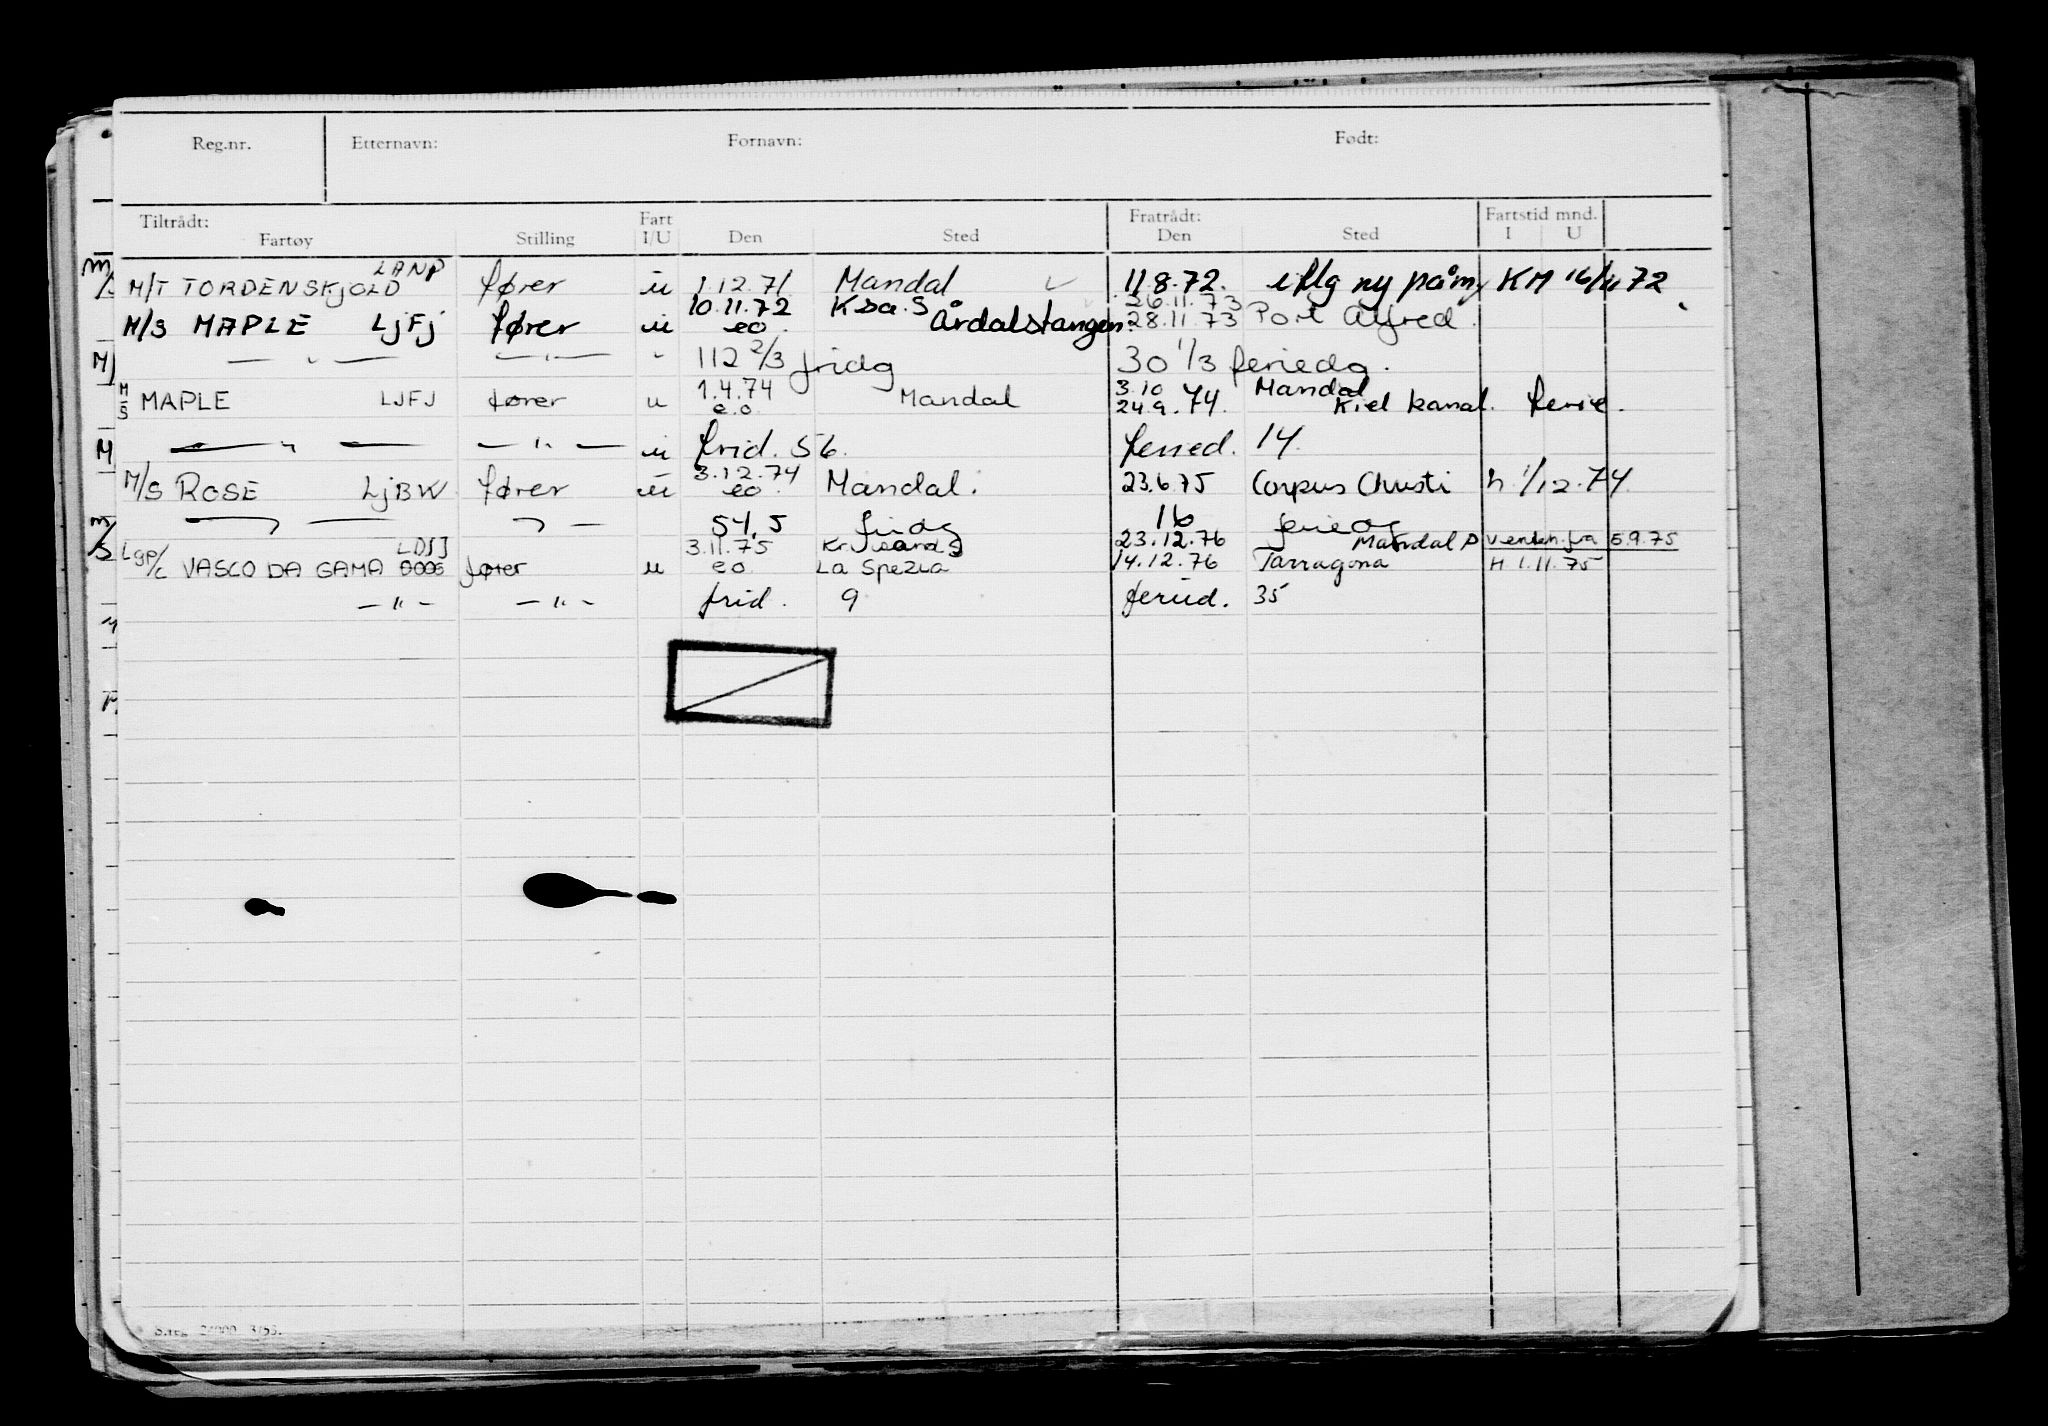 Reg.nr. Etternavn: Fornavn: Født:
Tiltrådt: Fart Fratrådt: Fartstid mnd.
Fartøy Stilling I/U Den Sted Den Sted I U
M/T TORDENSKJOLD LANP fører u 1.12.71 Mandal 11.8.72. iflg ny påm. KM 16/11 72
10.11.72 K.sa.S 26.11.73
M/S MAPLE LJFJ fører u eo. Årdalstangen 28.11.73 Port Alfred.
— " — — " — " 112 2/3 fridg 30 1/3 feriedg.
1.4.74 3.10 Mandal
M/S MAPLE LJFJ fører u e.o. Mandal 24.9.74. Kiel kanal. ferie.
— " — — " — u frid. 56. feried. 14.
3.12.74
M/S ROSE LJBW fører u eo. Mandal. 23.6.75 Corpus Christi h. 1/12.74
54,5 fridg 16 feriedg
LDSJ 3.11.75 Kr.sand S 23.12.76 Mandal P venten. fra 5.9.75
Lgp/c VASCO DA GAMA fører u eo. La Spezia 14.12.76 Tarragona H 1.11.75
— " — — " — frid. 9 feried. 35